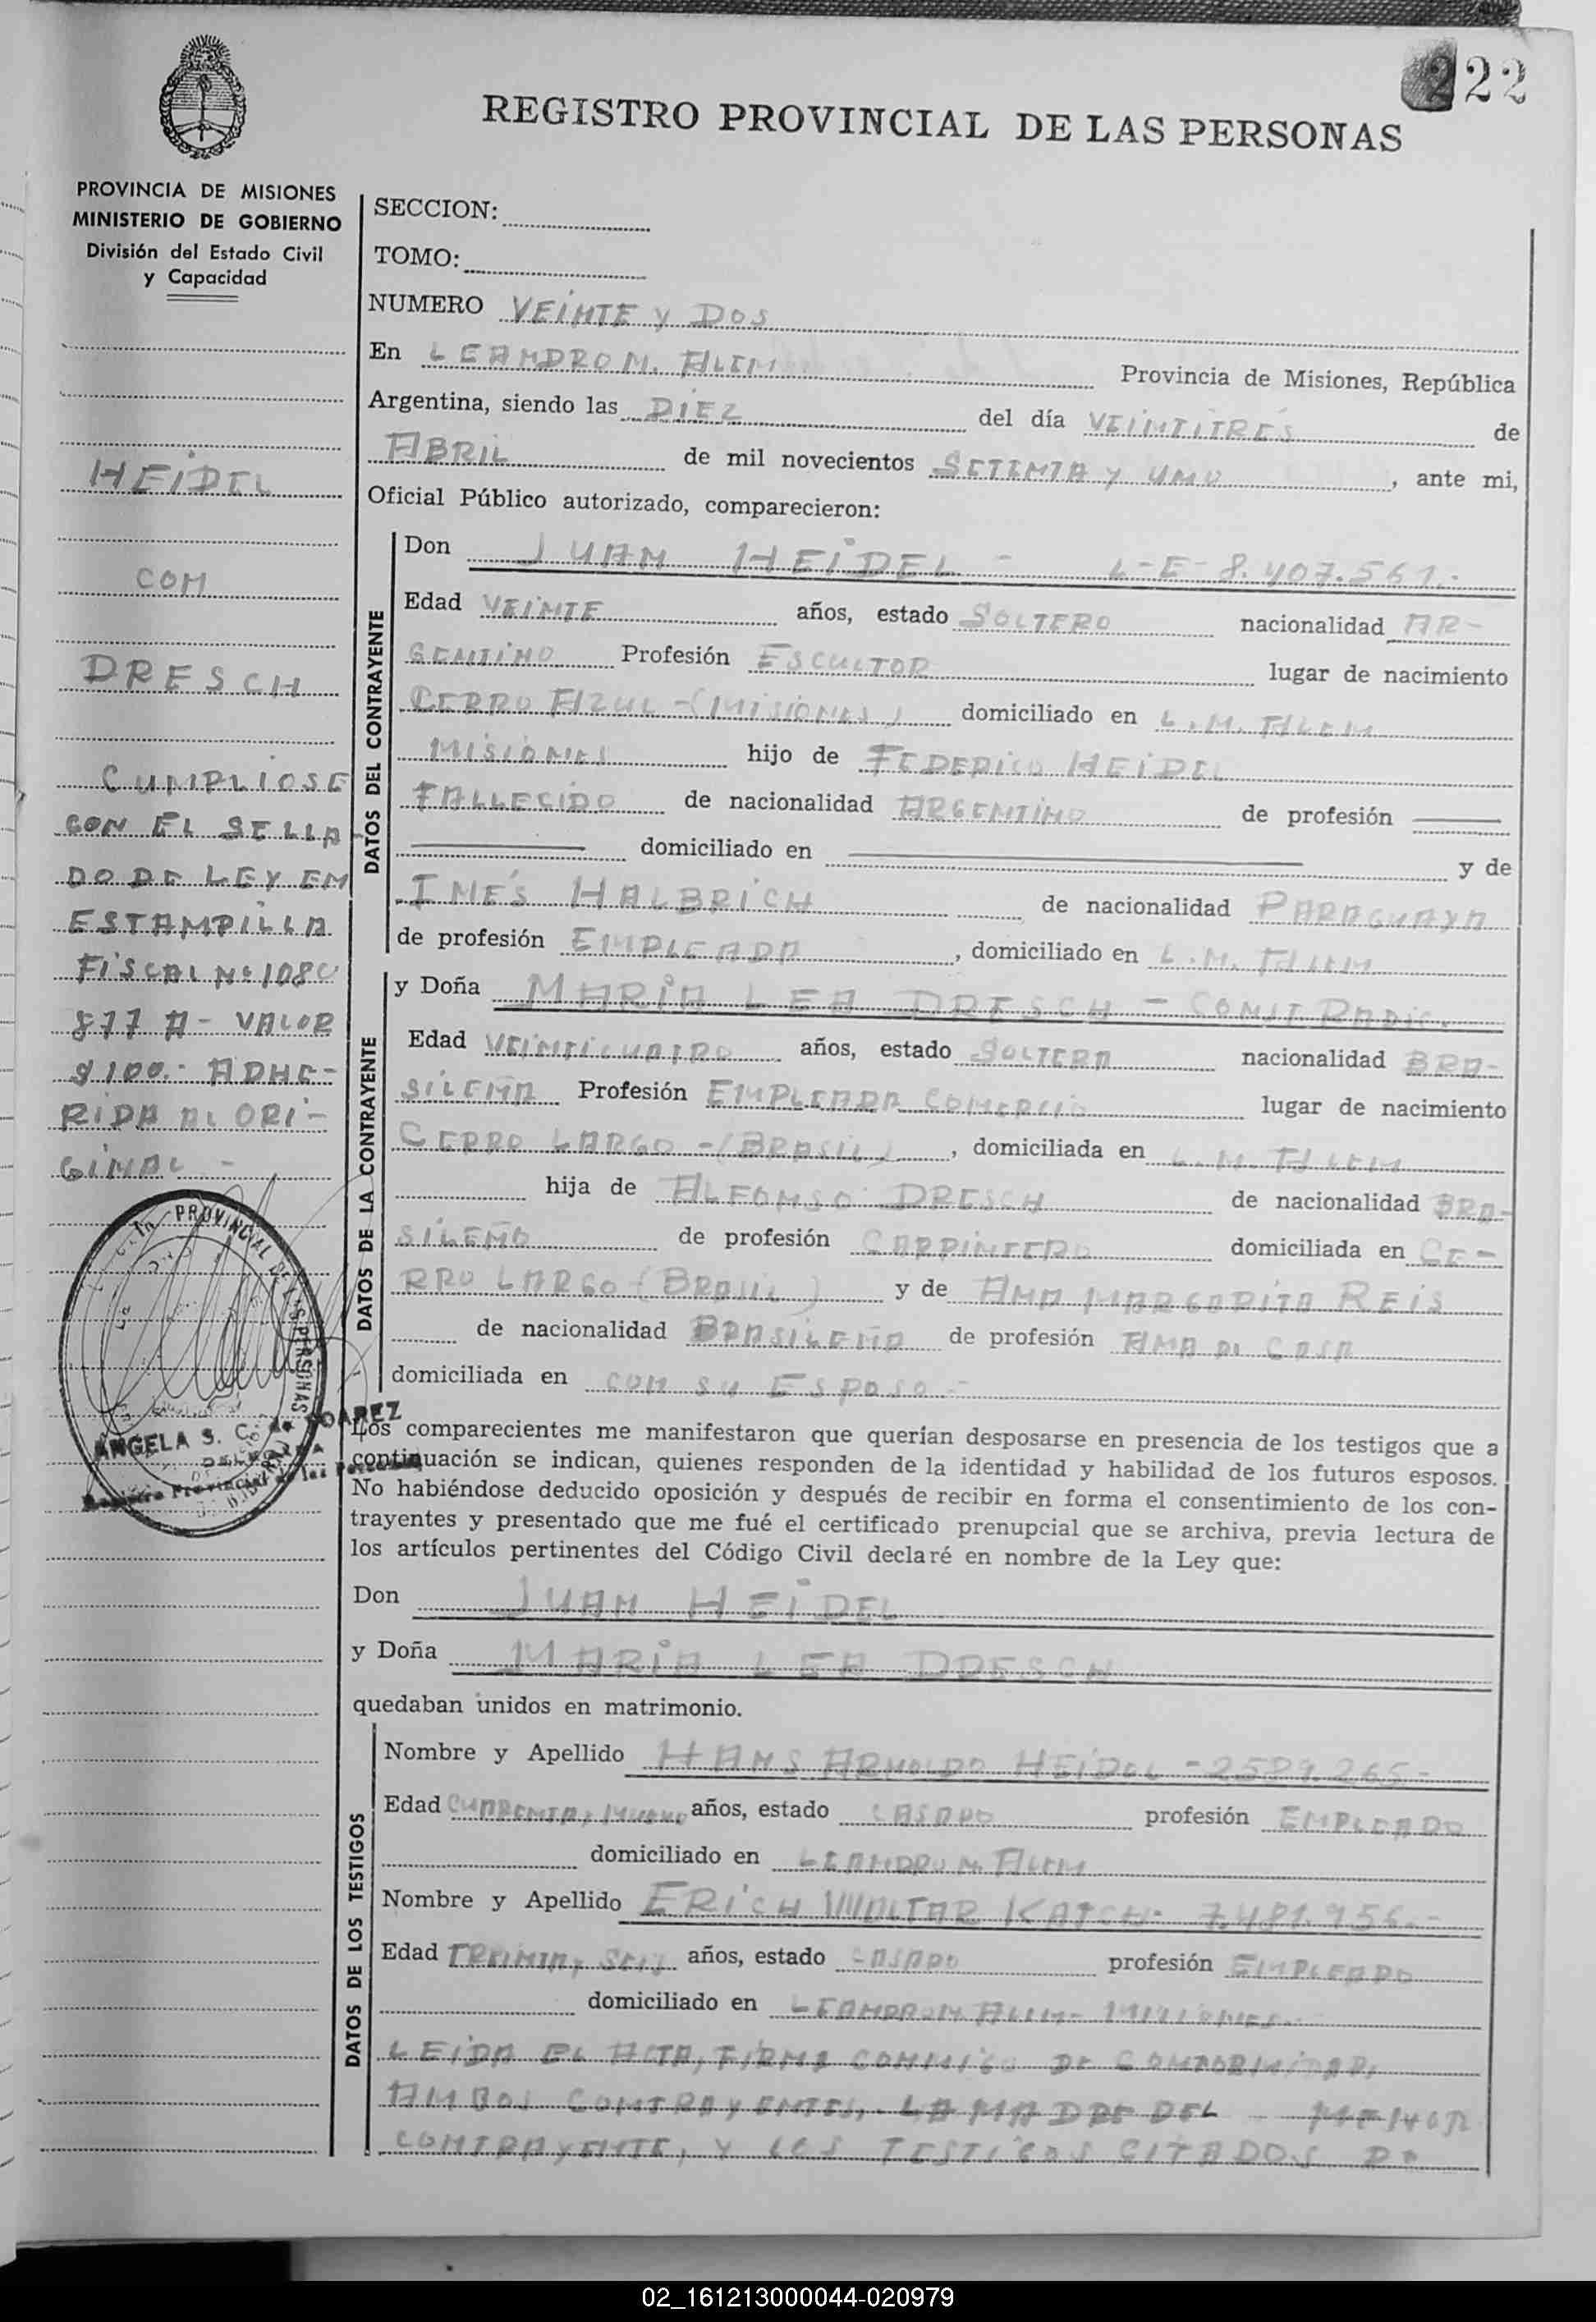 222
REGISTRO PROVINCIAL DE LAS PERSONAS
PROVINCIA DE MISIONES
MINISTERIO DE GOBIERNO
División del Estado Civil
y Capacidad
HEIDEL
CON
DRESCH
CUMPLIOSE
CON EL SELLA
DO DE LEY EN
ESTAMPILLA
FISCAL Nº 1080
877 A - VALOR
$ 100.- ADHE-
RIDA AL ORI-
GINAL -
PROVINCIAL DE LAS PERSONAS
ANGELA S. C. de SOAREZ
DELEGADA
Registro Provincial de las Personas
SECCION:
TOMO:
NUMERO VEINTE Y DOS
En LEANDRO N. ALEM Provincia de Misiones, República
Argentina, siendo las DIEZ del día VEINTITRES de
ABRIL de mil novecientos SETENTA Y UNO, ante mi,
Oficial Público autorizado, comparecieron:
DATOS DEL CONTRAYENTE
Don JUAN HEIDEL - L-E- 8.407.561.-
Edad VEINTE años, estado SOLTERO nacionalidad AR-
GENTINO Profesión ESCULTOR lugar de nacimiento
CERRO AZUL - (MISIONES) domiciliado en L.N. ALEM
MISIONES hijo de FEDERICO HEIDEL
FALLECIDO de nacionalidad ARGENTINO de profesión
domiciliado en y de
INÉS HALBRICH de nacionalidad PARAGUAYA
de profesión EMPLEADA, domiciliado en L.N. ALEM
DATOS DE LA CONTRAYENTE
y Doña MARIA LEA DRESCH - CONST RADIC.
Edad VEINTICUATRO años, estado SOLTERA nacionalidad BRA-
SILEÑA Profesión EMPLEADA COMERCIO lugar de nacimiento
CERRO LARGO - (BRASIL), domiciliada en L.N. ALEM
hija de ALFONSO DRESCH de nacionalidad BRA-
SILEÑO de profesión CARPINTERO domiciliada en CE-
RRO LARGO (BRASIL) y de ANA MARGARITA REIS
de nacionalidad BRASILEÑA de profesión AMA DE CASA
domiciliada en CON SU ESPOSO.-
Los comparecientes me manifestaron que querían desposarse en presencia de los testigos que a
continuación se indican, quienes responden de la identidad y habilidad de los futuros esposos.
No habiéndose deducido oposición y después de recibir en forma el consentimiento de los con-
trayentes y presentado que me fué el certificado prenupcial que se archiva, previa lectura de
los artículos pertinentes del Código Civil declaré en nombre de la Ley que:
Don JUAN HEIDEL
y Doña MARIA LEA DRESCH
quedaban unidos en matrimonio.
DATOS DE LOS TESTIGOS
Nombre y Apellido HANS ARNOLDO HEIDEL - 2589.265-
Edad CUARENTA y NUEVE años, estado CASADO profesión EMPLEADO
domiciliado en LEANDRO N. ALEM
Nombre y Apellido ERICH WALTAR KATCH- 7.481.956.-
Edad TREINTA y SEIS años, estado CASADO profesión EMPLEADO
domiciliado en LEANDRO N. ALEM- MISIONES.-
LEIDA EL ACTA, FIRMA CONMIGO DE CONFORMIDAD,
AMBOS CONTRAYENTES, LA MADRE DEL MENOR
CONTRAYENTE, Y LOS TESTIGOS CITADOS. DE
02_161213000044-020979